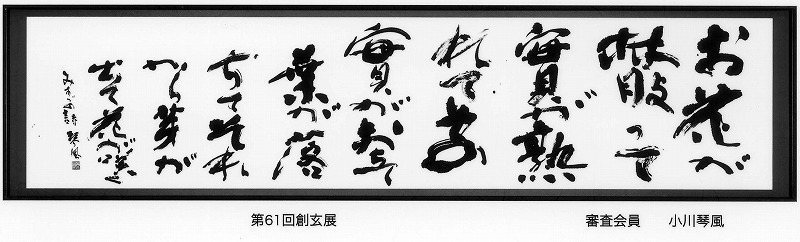 お花が
散って
實が熟
れてその
實がおちて
葉が落
ちてそれ
から芽が
出て花が咲く
琴風
第61回創玄展
審査会員 小川琴風